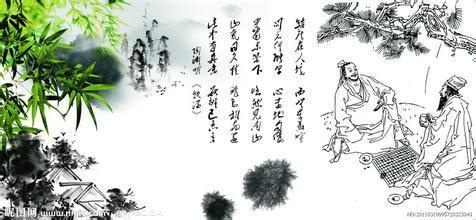 结庐在人境 而无车马喧
问君何能尔 心远地自偏
采菊东篱下 悠然见南山
山气日夕佳 飞鸟相与还
此中有真意 欲辨已忘言
陶渊明《饮酒》
昵图网